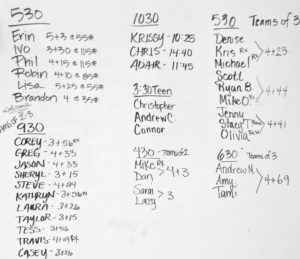 530
Erin 5+3 @ 55#
Ivo 3+30 @ 115#
Phil 4+15 @ 115#
Robin 4+10 @ 85#
Lisa 5+25 @ 55#
Brandon 4 @ 35#
930
COREY - 3+56
GREG - 4+33
JASON - 4+33
SHERYL - 3+15
STEVE - 4+24
KATHRYN - 3+56
LAURA - 3+26
TAYLOR - 3+15
TESS - 3+56
TRAVIS - 4+24
CASEY - 3+26
1030
KRISSY - 10:25
CHRIS - 14:40
ADAIR - 11:45
3:30 Teen
Christopher
Andrew C.
Connor
430 - Teams of 2
Mike Rx
Dan
4+3
Sarai
Lacey
3
530 Teams of 3
Denise
Kris Rx
Michael
4+23
Scott
Ryan B.
Mike O Rx
4+44
Jenny
Stacy
Olivia
4+41
630 Teams of 3
Andrew M.
Amy
Tami
4+69